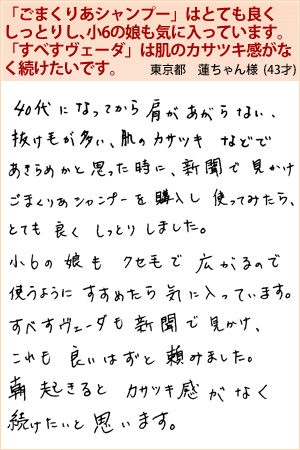 「ごまくりあシャンプー」はとても良く
しっとりし、小6の娘も気に入っています。
「すべすヴェーダ」は肌のカサツキ感がな
く続けたいです。 東京都 蓮ちゃん様 (43才)
40代になってから肩があがらない、
抜け毛が多い、肌のカサツキ などで
あきらめかと思った時に、新聞で見かけ
ごまくりあシャンプーを購入し 使ってみたら、
とても 良く しっとり しました。
小6の娘も クセ毛で 広がるので
使うように すすめたら 気に入っています。
すべすヴェーダも新聞で見かけ、
これも 良いはずと 頼みました。
朝 起きると カサツキ感 が なく
続けたいと思います。